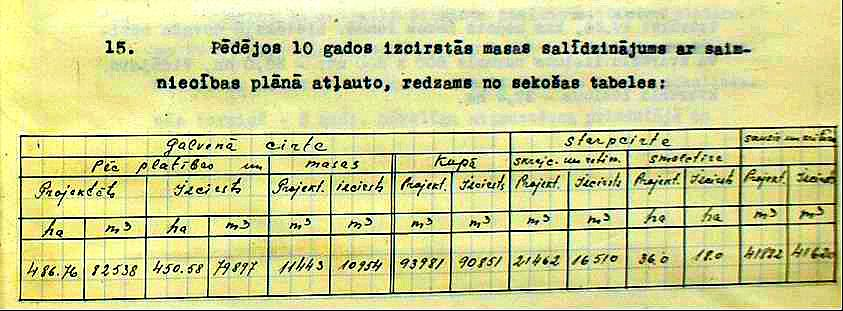 15. Pēdējos 10 gados izcirstās masas salīdzinājums ar saim-
niecības plānā atļauto, redzams no sekošas tabeles:
galvenā cirte starpcirte sausie un kritušie
Pēc platības un masas Kupā smaletire
Projektēts Izcirsts Projekt. izcirsts Projekt. Izcirsts Projekt. Izcirsts Projekt. Izcirsts Projekt. Izcirsts
ha m³ ha m³ m³ m³ m³ m³ m³ m³ ha ha m³ m³
486.76 82538 450.58 79897 11443 10954 93981 90851 21462 16510 36.0 18.0 41620